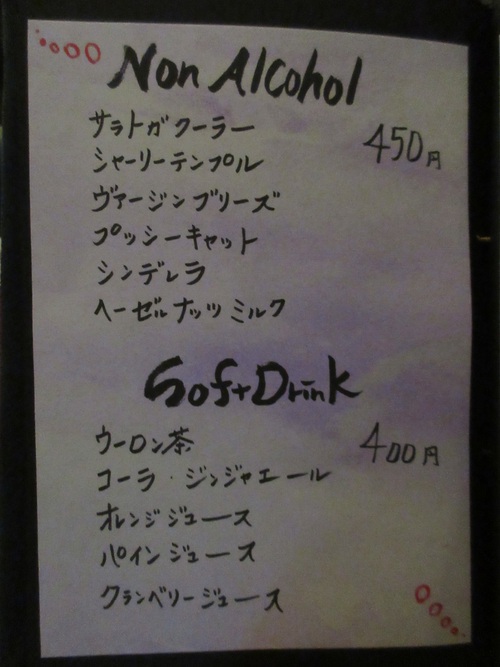 Non Alcohol
450円
サラトガクーラー
シャーリーテンプル
ヴァージンブリーズ
プッシーキャット
シンデレラ
ヘーゼルナッツミルク
Soft Drink
400円
ウーロン茶
コーラ・ジンジャエール
オレンジジュース
パインジュース
クランベリージュース